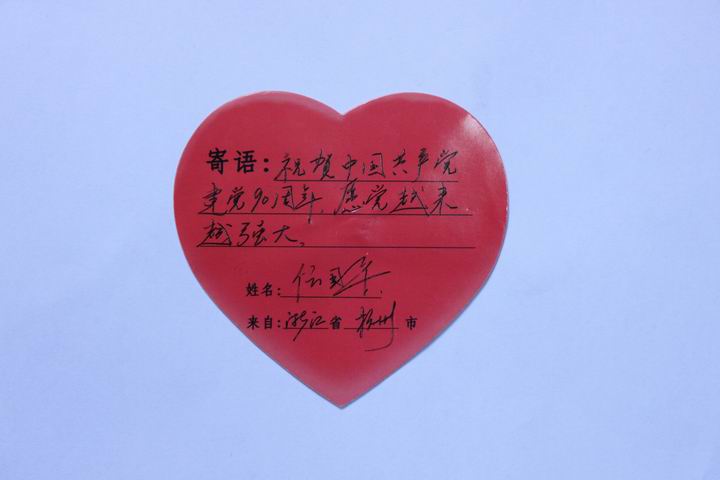 寄语：祝贺中国共产党
建党90周年，愿党越来
越强大。
姓名：任国年
来自：浙江省杭州市